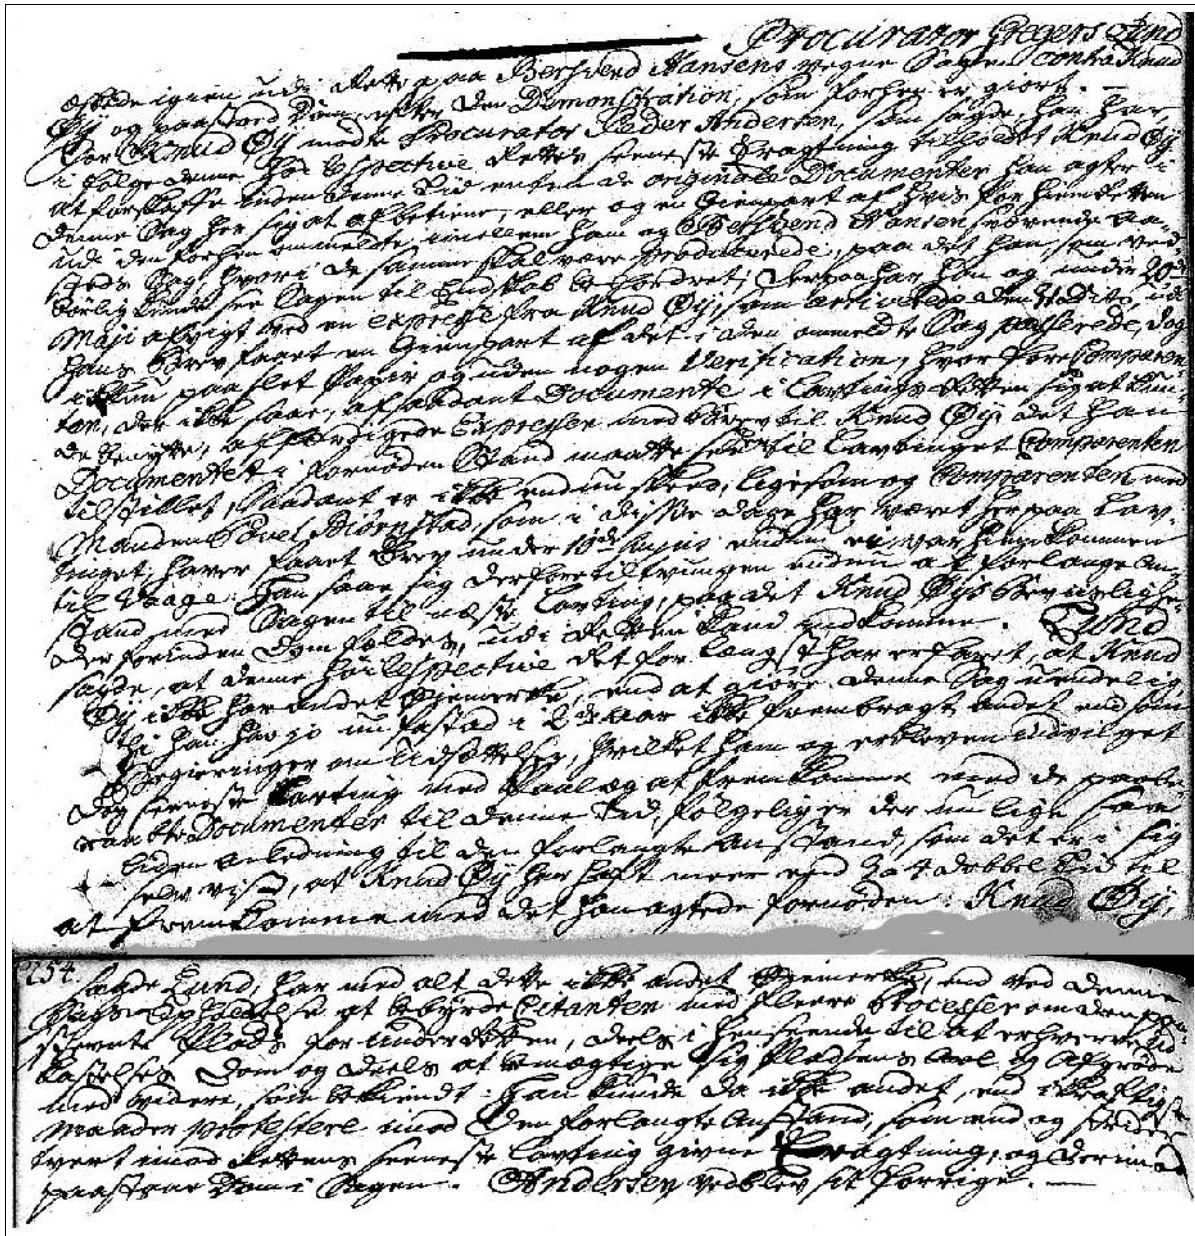 Procurator Gregers Lund
æskede igien udi Rette paa Bersvend Hansens vegne Sagen contra Knud
Øÿ og paastod Dom, efter den Demonstration, som forhen er giort. —
For Knud Øÿ mødte Procurator Peder Andersen, som sagde, han har,
i følge denne Høÿ Respective Rettes seeneste Eragtning tilholdt Knud Øÿ
at forskaffe inden denne Tid enten de originale Documenter han agter i
denne Sag her sig at afbetiene, eller og en Gienpart af hvis for Hiemtetten
udi den forhen ommeldte, imellem ham og Bersvend Hansen svævende Aa-
steds Sag, hvori de samme skal være producerede, paa det han, som ved
børlig kunde see Sagen til Endskab befordret; Derpaa har han og under 20de
Maji afvigt ved en Expresse fra Knud Øÿ, som arriverede den Dito, udi
hans Brev faaet en Gienpart af det i den ommeldte Sag passerede, dog
ikkun paa slet Papir og uden nogen Verification, hvorfore Comparen-
ten, der ikke saae, af saadant Document i Lavtings Retten sig at kun-
de benytte, affærdigede Expressen med Brev til Knud Øÿ, det han
Documentet i fornøden Stand maatte see til Lavtinget Comparenten
tilstillet, Saadant er ikke endnu skeed, ligesom og Comparenten med
Manden Povel Biørnstad, som i disse dage har været her paa Lav-
tinget, haver faaet Brev under 10de hujus endnu ei var hiemkommen
til Vaage. Han saae sig derfore tiltvungen endnu at forlange An-
stand med Sagen til næste Lavting, paa det Knud Øÿs Beviislighe-
der forinden Dom fældes, udi Retten kand indkomme. Lund
sagde, at denne Høÿ Respective Ret for længst har erfaret, at Knud
Øÿ ikke har andet Øiemerke, end at giøre denne Sag uendelig,
thi han har jo nu fastad i 2de Aar ikke frembragt andet end som
Begieringer om Udsættelser, hvilket ham og er bleven indvilget
dog seeneste Lavting med Paalæg at fremkomme med de paabe-
raabte Documenter til denne Tid, følgelig er der nu lige saa
liden Anledning til den forlangte Anstand, som det er i sig
selv vist, at Knud Øÿ har haft meer end 3 a 4 dobbel Tid til
at fremkomme med det han agtede fornøden. Knud Øÿ,
1754.
sagde Lund, har med alt dette ikke andet Øiemerke, end ved denne
Sags Ophold at bebyrde Citanten med fleere Processer om den paa-
stævnte Plads for Underretten, deels i henseende til at erhverve Ud-
kastelses Dom og deels at bemægtige sig Pladsens Avl og Afgrøde
med videre, som bekiendt. Han kunde da ikke andet, end i kraftigste
Maader protestere imod den forlangte Anstand, som end og strider
tvert imod Rettens seeneste Lavting givne Eragtning, og derimod
paastaar Dom i Sagen. Andersen vedblev sit forrige. —